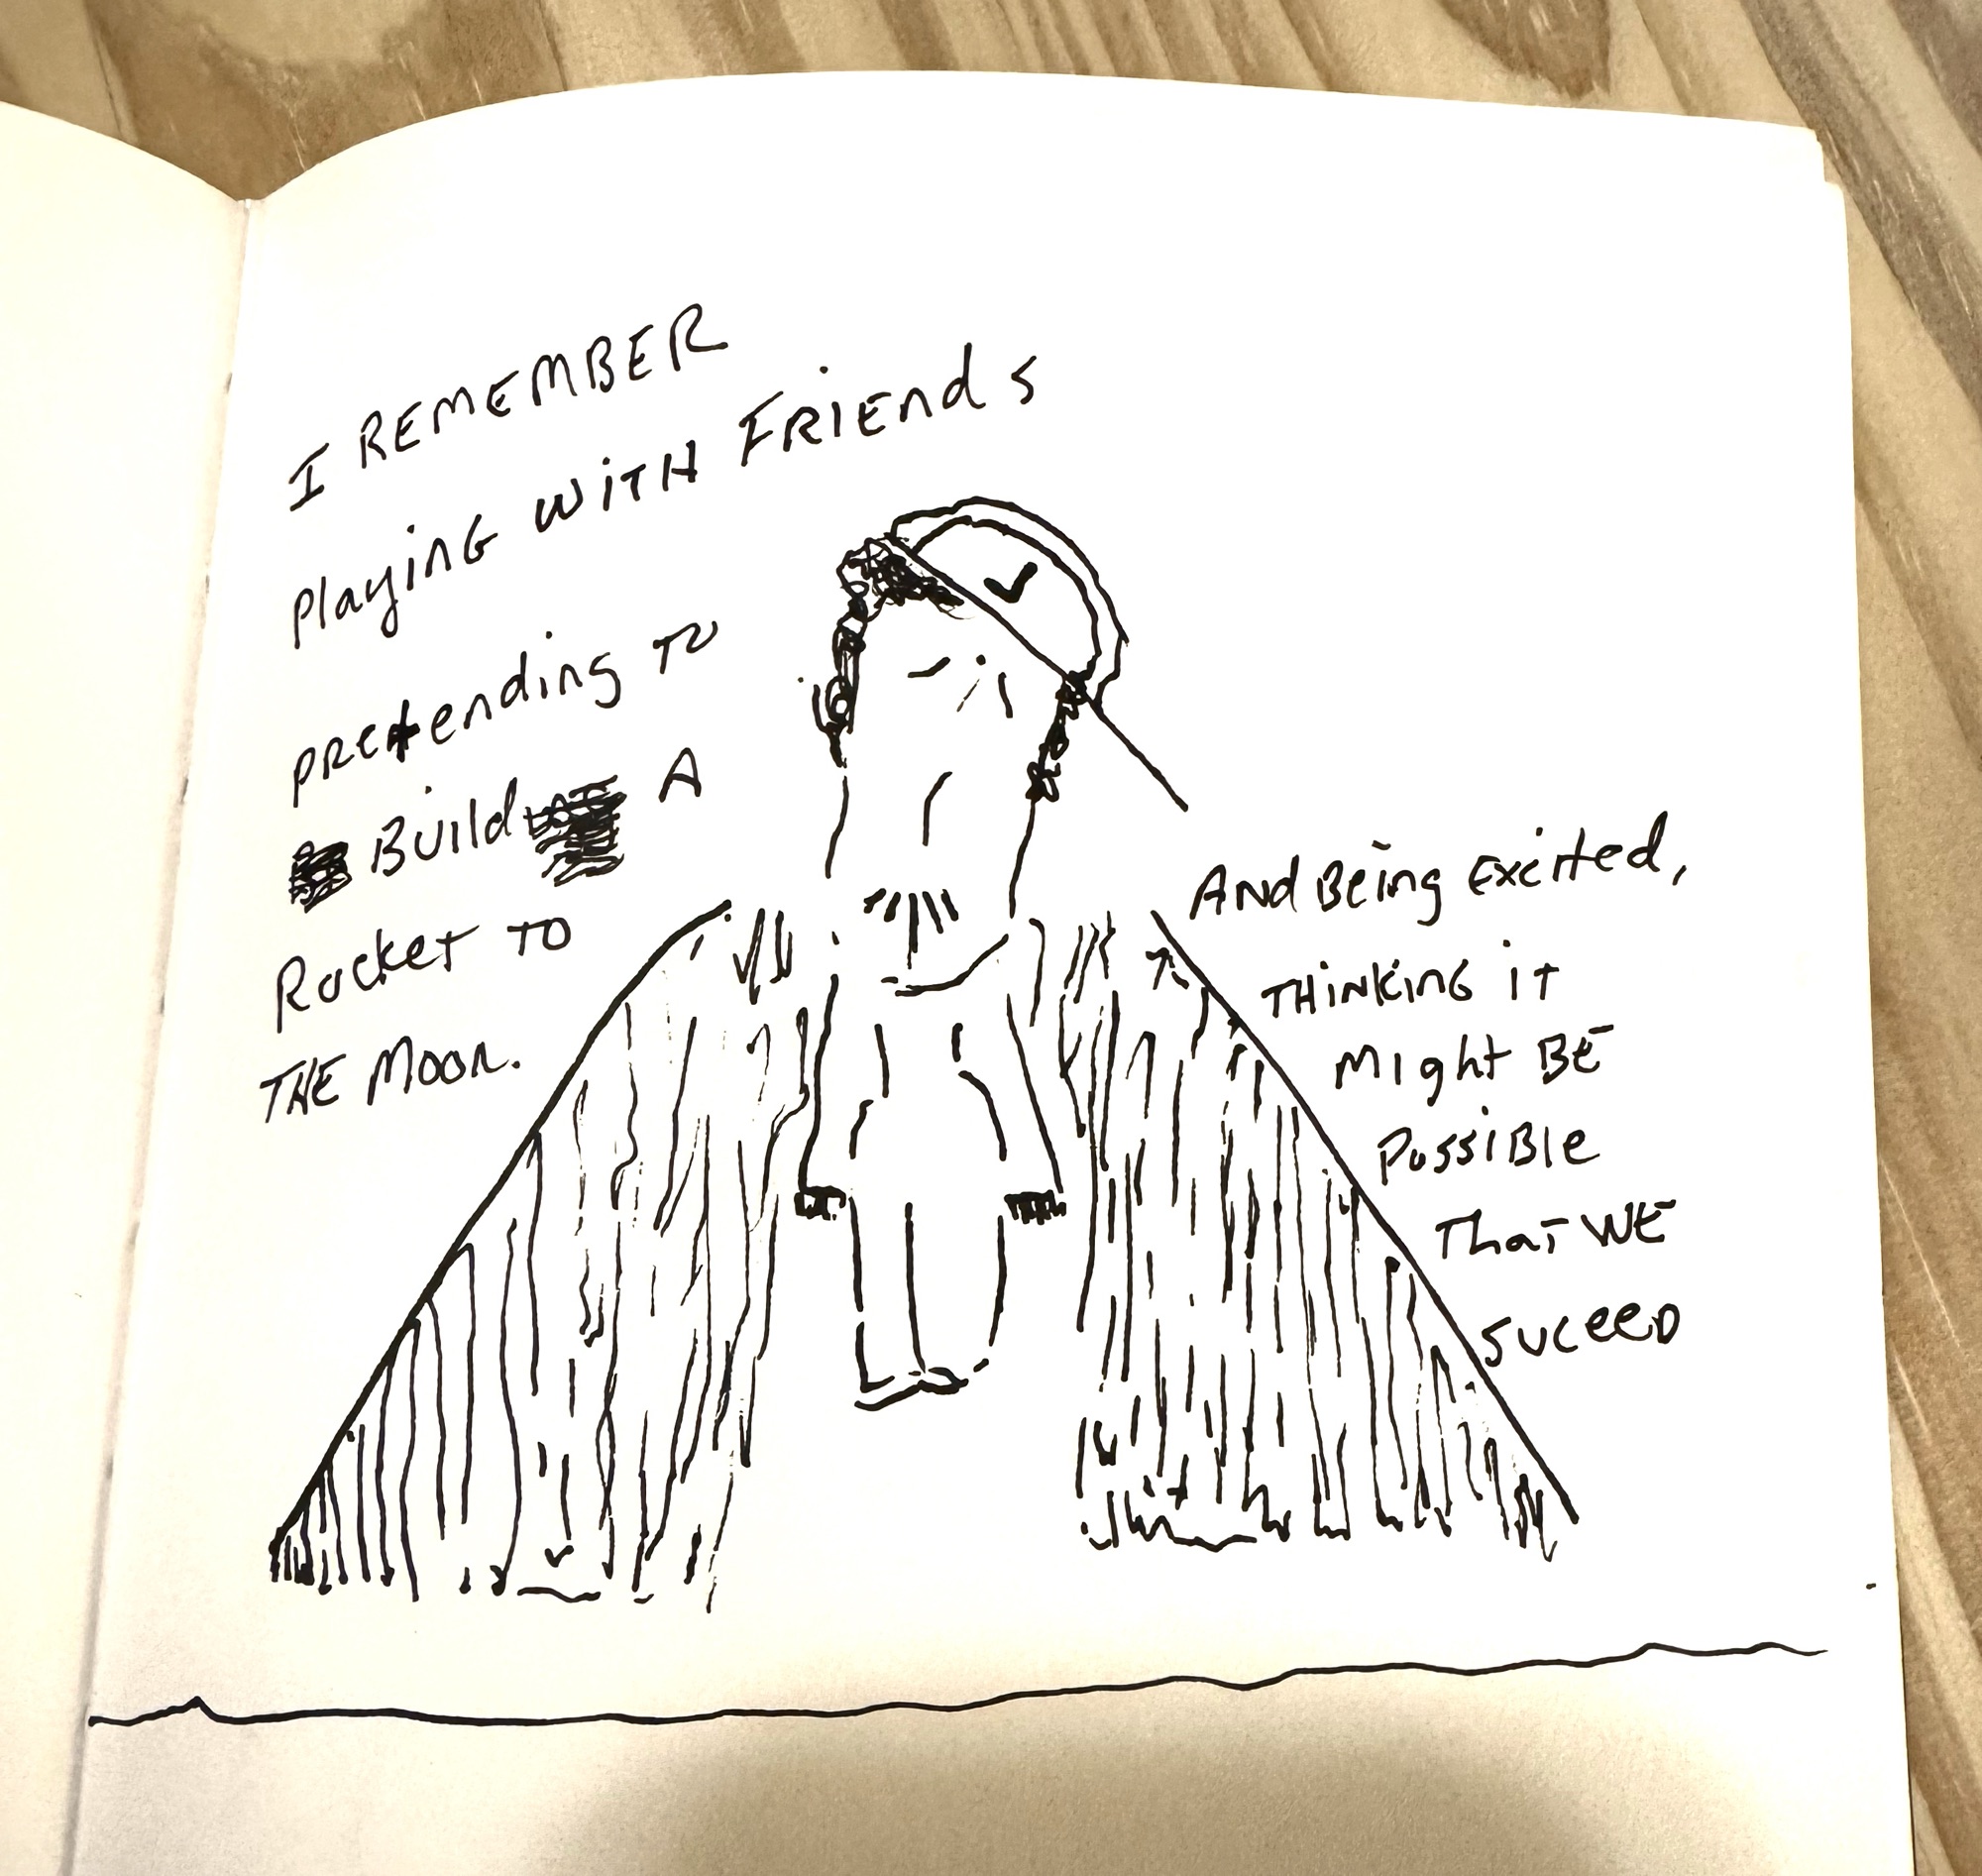 I REMEMBER
Playing WITH FRIENds
PREtending TO
Build A
Rocket TO
THE MOON.
ANd BEing Excited,
THINKING iT
Might BE
Possible
That WE
SUCEED